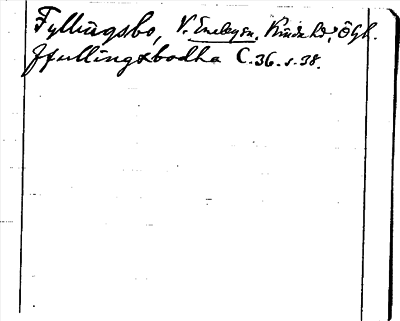 Fyllingsbo, V. Eneby sn, Kinda hd, Ögl.
ffullingxbodha C.36.s.38.